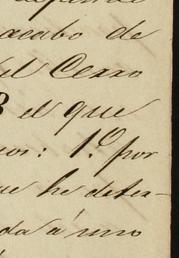 acabo de
el Cerro
3 el que
nor: 1º por
ue he deter-
da á uno